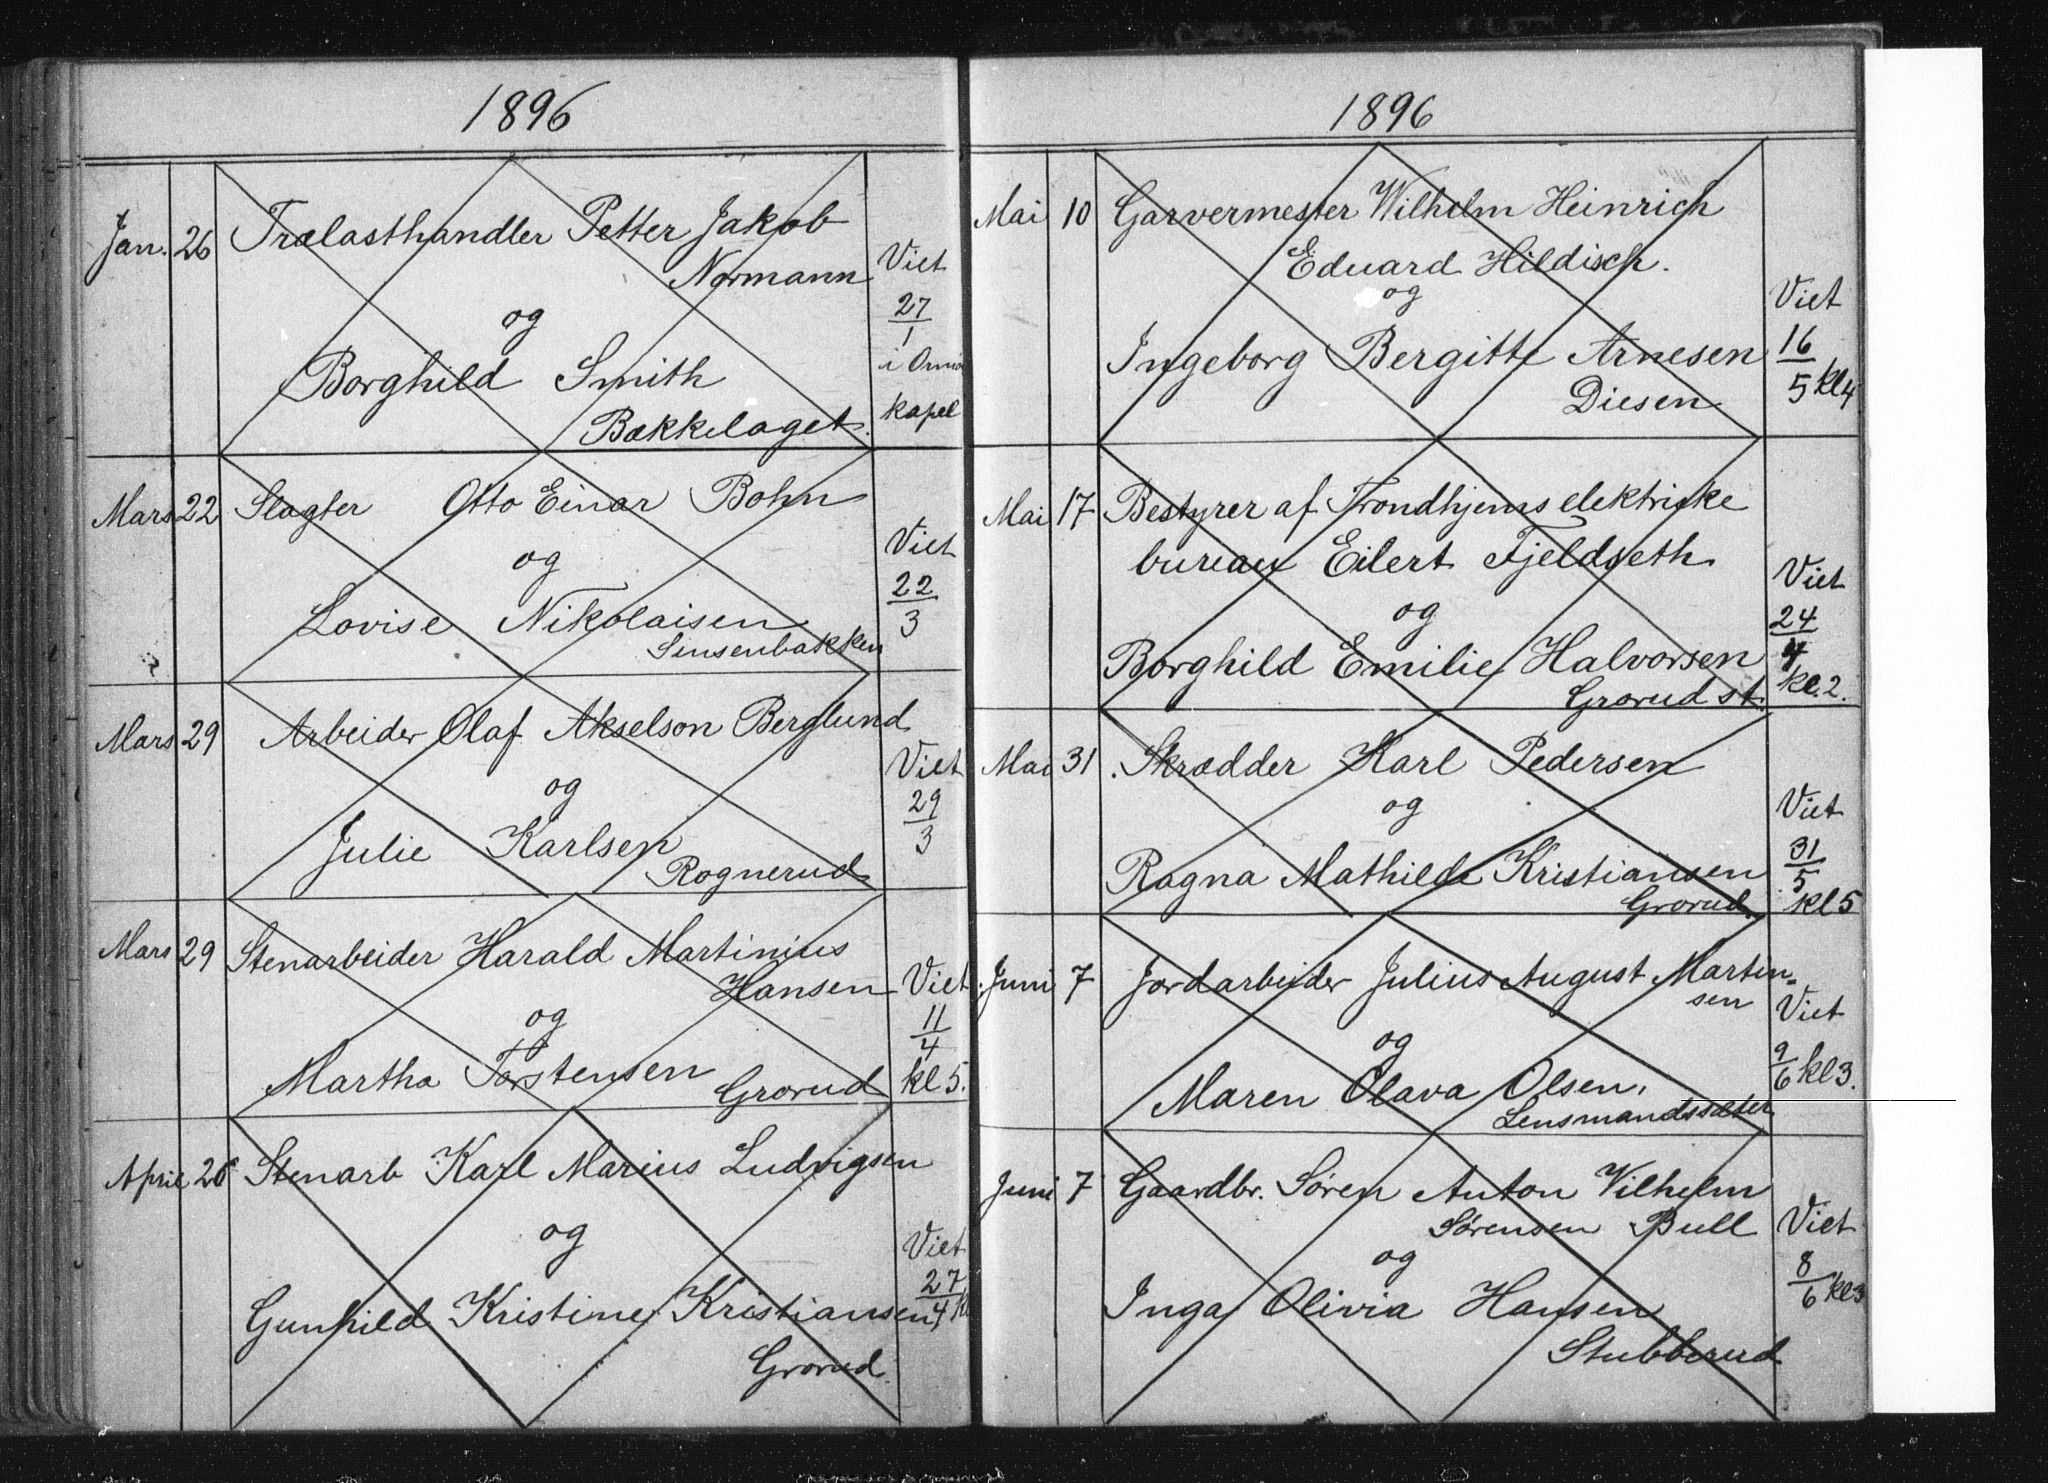 1896
Jan. 26 Trælasthandler Petter Jakob
Normann
og
Borghild Smith
Bækkelaget.
Viet
27
1
i
kapel
Mars 22 Slagter Otto Einar Bohn
og
Lovise Nikolaisen
Sinsenbakken
Viet
22
3
Mars 29 Arbeider Olaf Akselson Berglund
og
Julie Karlsen
Rognerud
Viet
29
3
Mars 29 Stenarbeider Harald Martinius
Hansen
og
Martha Torstensen
Grorud
Viet
11
4
kl 5.
April 26 Stenarb Karl Marius Ludvigsen
og
Gunhild Kristine Kristiansen
Grorud.
Viet
27
4 kl
1896
Mai 10 Garvermester Wilhelm Heinrich
Eduard Hildisch.
og
Ingeborg Bergitte Arnesen
Diesen
Viet
16
5 kl 4
Mai 17 Bestyrer af Trondhjems elektriske
bureau Eilert Fjeldseth
og
Borghild Emilie Halvorsen
Grorud st.
Viet
24
kl. 2.
Mai 31 Skrædder Karl Pedersen
og
Ragna Mathilde Kristiansen
Grorud
Viet
31
5
kl 5
Juni 7 Jordarbeider Julius August Martin-
sen
og
Maren Olava Olsen,
Lensmandssæter
Viet
9
6 kl 3.
Juni 7 Gaardbr. Søren Anton Vilhelm
Sørensen Bull
og
Inga Olivia Hansen
Stubberud
Viet
8
6 kl 3